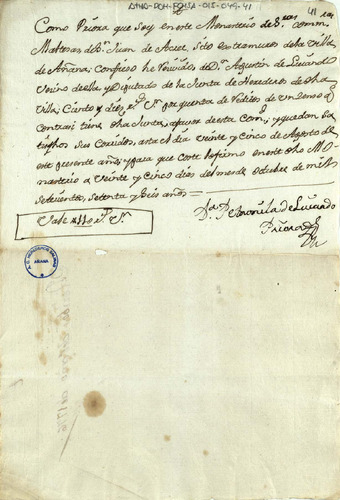 41
Como Priora que soy en este Monasterio de S.ras Comm.
de S.n Juan de Acre, Sito extramuros de la Villa
de Añana, Confieso he recivido de D.n Agustin de
Vecino de ella, y Diputado de la Junta de Herederos de dha
Villa, Ciento y diez r.s V.n por quenta de reditos de un Zenso q.
contra si tiene dha Junta, afavor de esta Com.d y quedan sa
tisfhos sus Corridos, asta el dia Veinte y Cinco de Agosto de
este presente año; y para que Conste lo firmo en este dho Mo
nasterio a Veinte y Cinco dias del mes de Octubre de mil
setecientos, setenta y seis años =
Vale 110 r.s V.n
D.a Petronila de
Priora
AÑANA